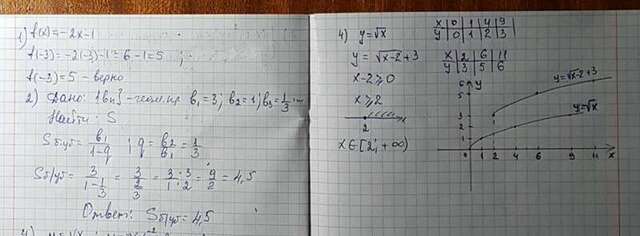 1) f(x)=-2x-1
f(-3)=-2(-3)-1=6-1=5 ;
f(-3)=5 - верно
2) Дано: {bn}-геом.пр b₁=3; b₂=1; b₃=1/3...
Найти: S
Sб/уб=b₁/1-q ; q=b₂/b₁=1/3
Sб/уб=3/1-1/3=3/2/3=3·3/1·2=9/2=4,5
Ответ: Sб/уб=4,5
4) y=√x
x 0 1 4 9
y 0 1 2 3
y=√x-2+3
x 2 6 11
y 3 5 6
x-2≥0
x≥2
2
x∈[2;+∞)
y
6
5
3
2
1
y=√x-2+3
y=√x
1 2 4 6 9 11 x